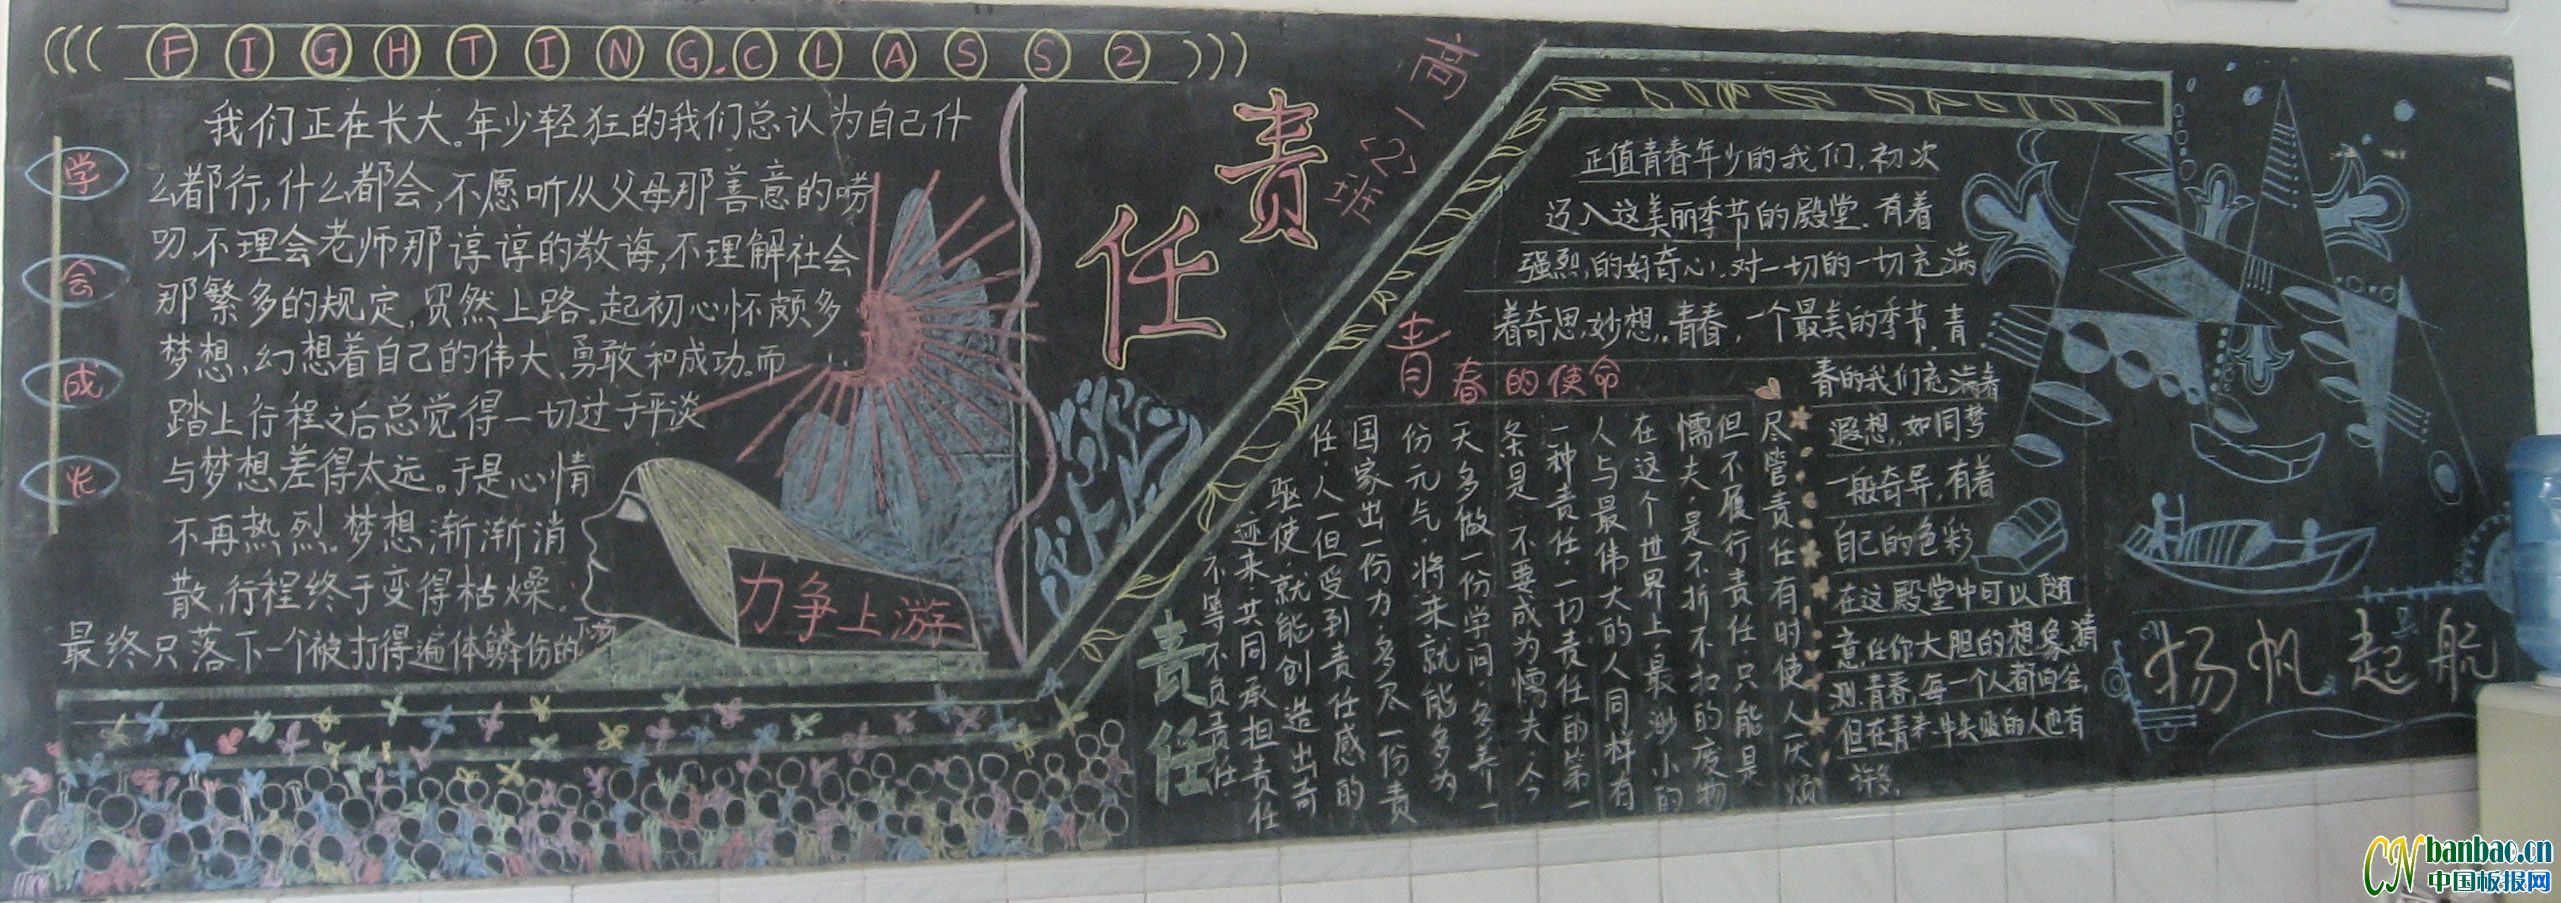 FIGHTING.CLASS2
学会成长
我们正在长大。年少轻狂的我们总认为自己什
么都行,什么都会,不愿听从父母那善意的唠
叨,不理会老师那谆谆的教诲,不理解社会
那繁多的规定,贸然上路。起初心怀颇多
梦想,幻想着自己的伟大、勇敢和成功。而
踏上行程之后总觉得一切过于平淡
与梦想差得太远。于是心情
不再热烈。梦想渐渐消
散,行程终于变得枯燥.
最终只落下一个被打得遍体鳞伤的下场
力争上游
责任
高一
〈2〉班
正值青春年少的我们,初次
迈入这美丽季节的殿堂.有着
强烈的好奇心,对一切的一切充满
着奇思妙想,青春,一个最美的季节.青
春的我们充满着
遐想,如同梦
一般奇异,有着
自己的色彩
在这殿堂中可以随
意,任你大胆的想象,猜
测.青春,每一个人都向往,
但在青春中失败的人也有
许多.
青春的使命
尽管责任有时使人厌烦
但不履行责任,只能是
懦夫,是不折不扣的废物
在这个世界上,最渺小的
人与最伟大的人同样有
一种责任,一切责任的第一
条是,不要成为懦夫,今
天多做一份学问,多养一
份元气,将来就能多为
国家出一份力,多尽一份责
任,人一但受到责任感的
驱使,就能创造出奇
迹来,共同承担责任
不等不负责任
责任
扬帆起航
CN banbao.cn
中国板报网